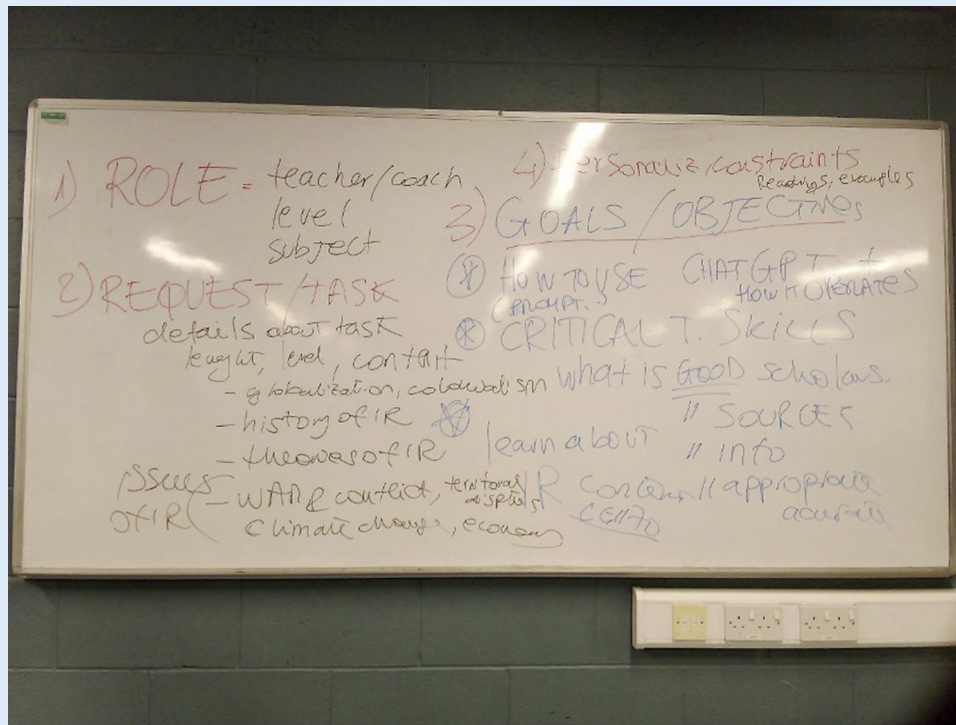 1) ROLE = teacher/coach
level
subject
2) REQUEST/TASK
details about task
lenght, level, content
- globalization, colonialism
- history of IR
- theories of IR
issues of IR
- WAR & conflict, territorial disputes
climate change, economy
4) Personaliz, constraints
Readings, examples
3) GOALS / OBJECTIVES
HOW TO USE CHATGPT +
(PROMPT.) HOW IT OPERATES
CRITICAL T. SKILLS
What is GOOD scholars.
" SOURCES
learn about " info
IR content " appropriate
acurate